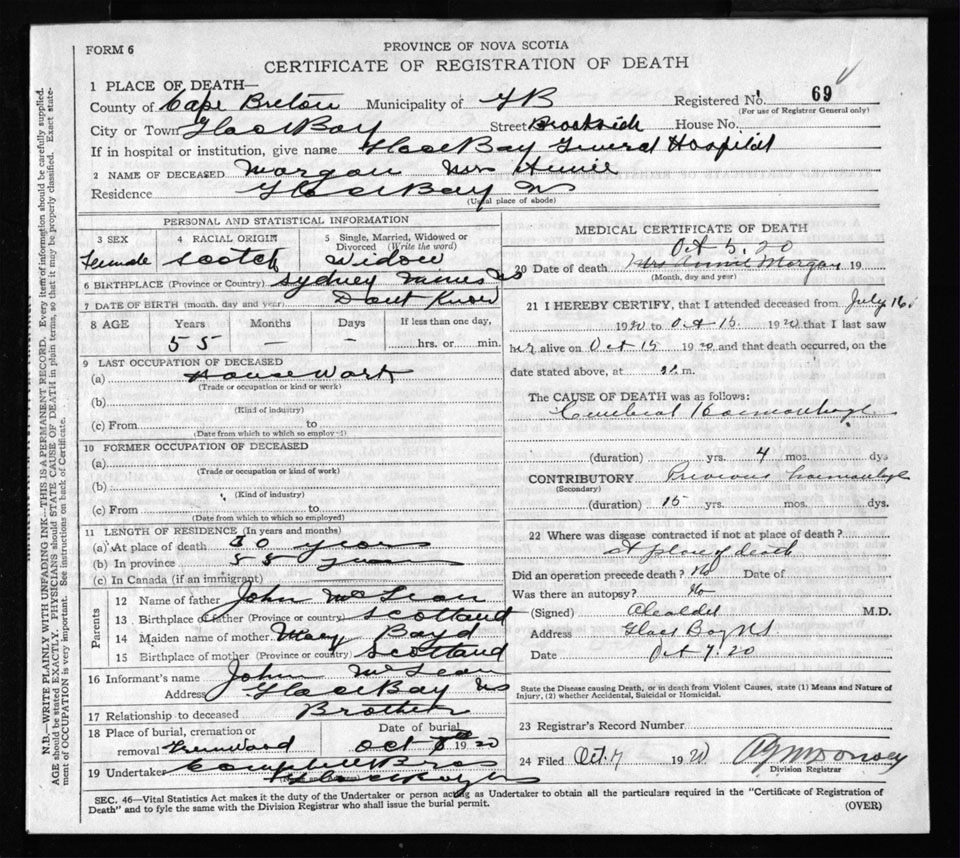 FORM 6
PROVINCE OF NOVA SCOTIA
CERTIFICATE OF REGISTRATION OF DEATH
1 PLACE OF DEATH—
County of Cape Breton Municipality of GB Registered No. 69
(For use of Registrar General only)
City or Town Glace Bay Street Brookside House No.
If in hospital or institution, give name Glace Bay General Hospital
2 NAME OF DECEASED Morgan Mrs Annie
Residence Glace Bay NS
(Usual place of abode)
PERSONAL AND STATISTICAL INFORMATION
3 SEX 4 RACIAL ORIGIN 5 Single, Married, Widowed or Divorced (Write the word)
Female Scotch Widow
6 BIRTHPLACE (Province or Country) Sydney Mines NS
7 DATE OF BIRTH (month, day and year) Dont Know
8 AGE Years Months Days If less than one day,
55 — — hrs. or min.
9 LAST OCCUPATION OF DECEASED
(a) House Work
(Trade or occupation or kind or work)
(b)
(Kind of industry)
(c) From to
(Date from which to which so employ-1)
10 FORMER OCCUPATION OF DECEASED
(a)
(Trade or occupation or kind of work)
(b)
(Kind of industry)
(c) From to
(Date from which to which so employed)
11 LENGTH OF RESIDENCE (In years and months)
(a) At place of death 30 years
(b) In province 55 years
(c) In Canada (if an immigrant)
Parents
12 Name of father John McLean
13 Birthplace of father (Province or country) Scotland
14 Maiden name of mother Mary Boyd
15 Birthplace of mother (Province or country) Scotland
16 Informant's name John McLean
Address Glace Bay NS
17 Relationship to deceased Brother
18 Place of burial, cremation or removal Greenwood Date of burial Oct 1920
19 Undertaker Campbell Bros
Glace Bay NS
MEDICAL CERTIFICATE OF DEATH
Oct 5, 20
20 Date of death Mrs Annie Morgan 19
(Month, day and year)
21 I HEREBY CERTIFY, that I attended deceased from July 16
1920 to Oct 15 1920 that I last saw
her alive on Oct 15 1920 and that death occurred, on the
date stated above, at m.
The CAUSE OF DEATH was as follows:
Cerebral Haemorrhage
(duration) yrs. 4 mos. dys
CONTRIBUTORY Previous haemorrhage
(Secondary)
(duration) 15 yrs. mos. dys.
22 Where was disease contracted if not at place of death?
At place of death
Did an operation precede death? No Date of
Was there an autopsy? No
(Signed) M.D.
Address Glace Bay NS
Date Oct 7. 20
State the Disease causing Death, or in death from Violent Causes, state (1) Means and Nature of
Injury, (2) whether Accidental, Suicidal or Homicidal.
23 Registrar's Record Number
24 Filed Oct. 7 1920
Division Registrar
SEC. 46—Vital Statistics Act makes it the duty of the Undertaker or person acting as Undertaker to obtain all the particulars required in the "Certificate of Registration of
Death" and to fyle the same with the Division Registrar who shall issue the burial permit.
(OVER)
N.B.—WRITE PLAINLY WITH UNFADING INK—THIS IS A PERMANENT RECORD. Every item of information should be carefully supplied.
AGE should be stated EXACTLY. PHYSICIANS should STATE CAUSE OF DEATH in plain terms, so that it may be properly classified. Exact state-
ment of OCCUPATION is very important. See instructions on back of Certificate.